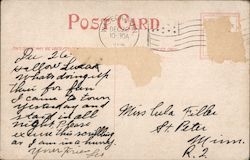 POST CARD
DEC
10-30A
Dec 26
Hallow Lula
Whats doing up
there for fun
I came to town
yesterday and
staid in all
night Please
excuse this scribbling
as I am in a hurry
Your Friend
Miss Lula Filler
St Peter
Minn
R. 5